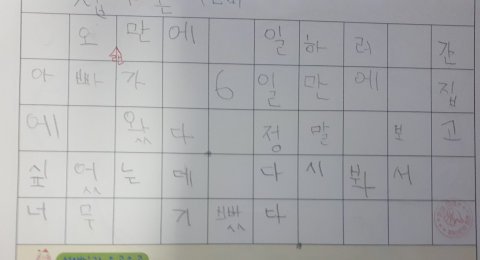 오만에 일하러 간
랜
아빠가 6일만에 집
에 왔다 정말 보고
싶었는데 다시 봐서
너무 기뻤다